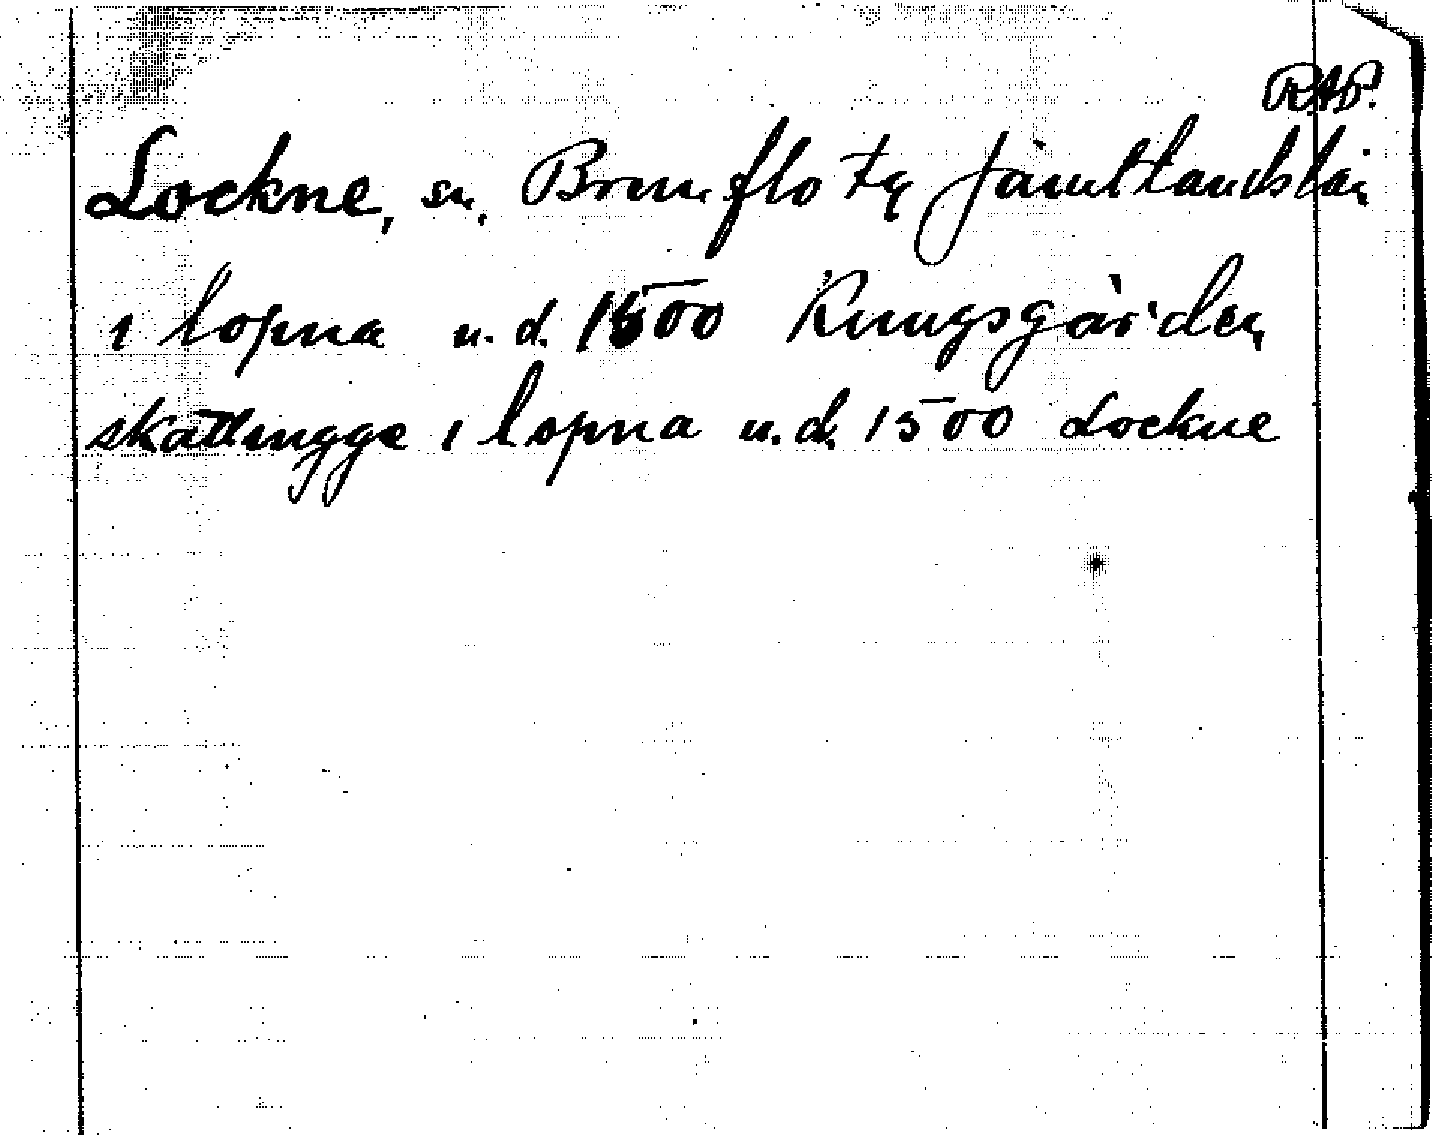 RAP.
Lockne, sn, Brunflo tg Jämtlands län
i lopna u.d. 1500 Kungsgården
skattlingge i lopna u.d. 1500 Lockne